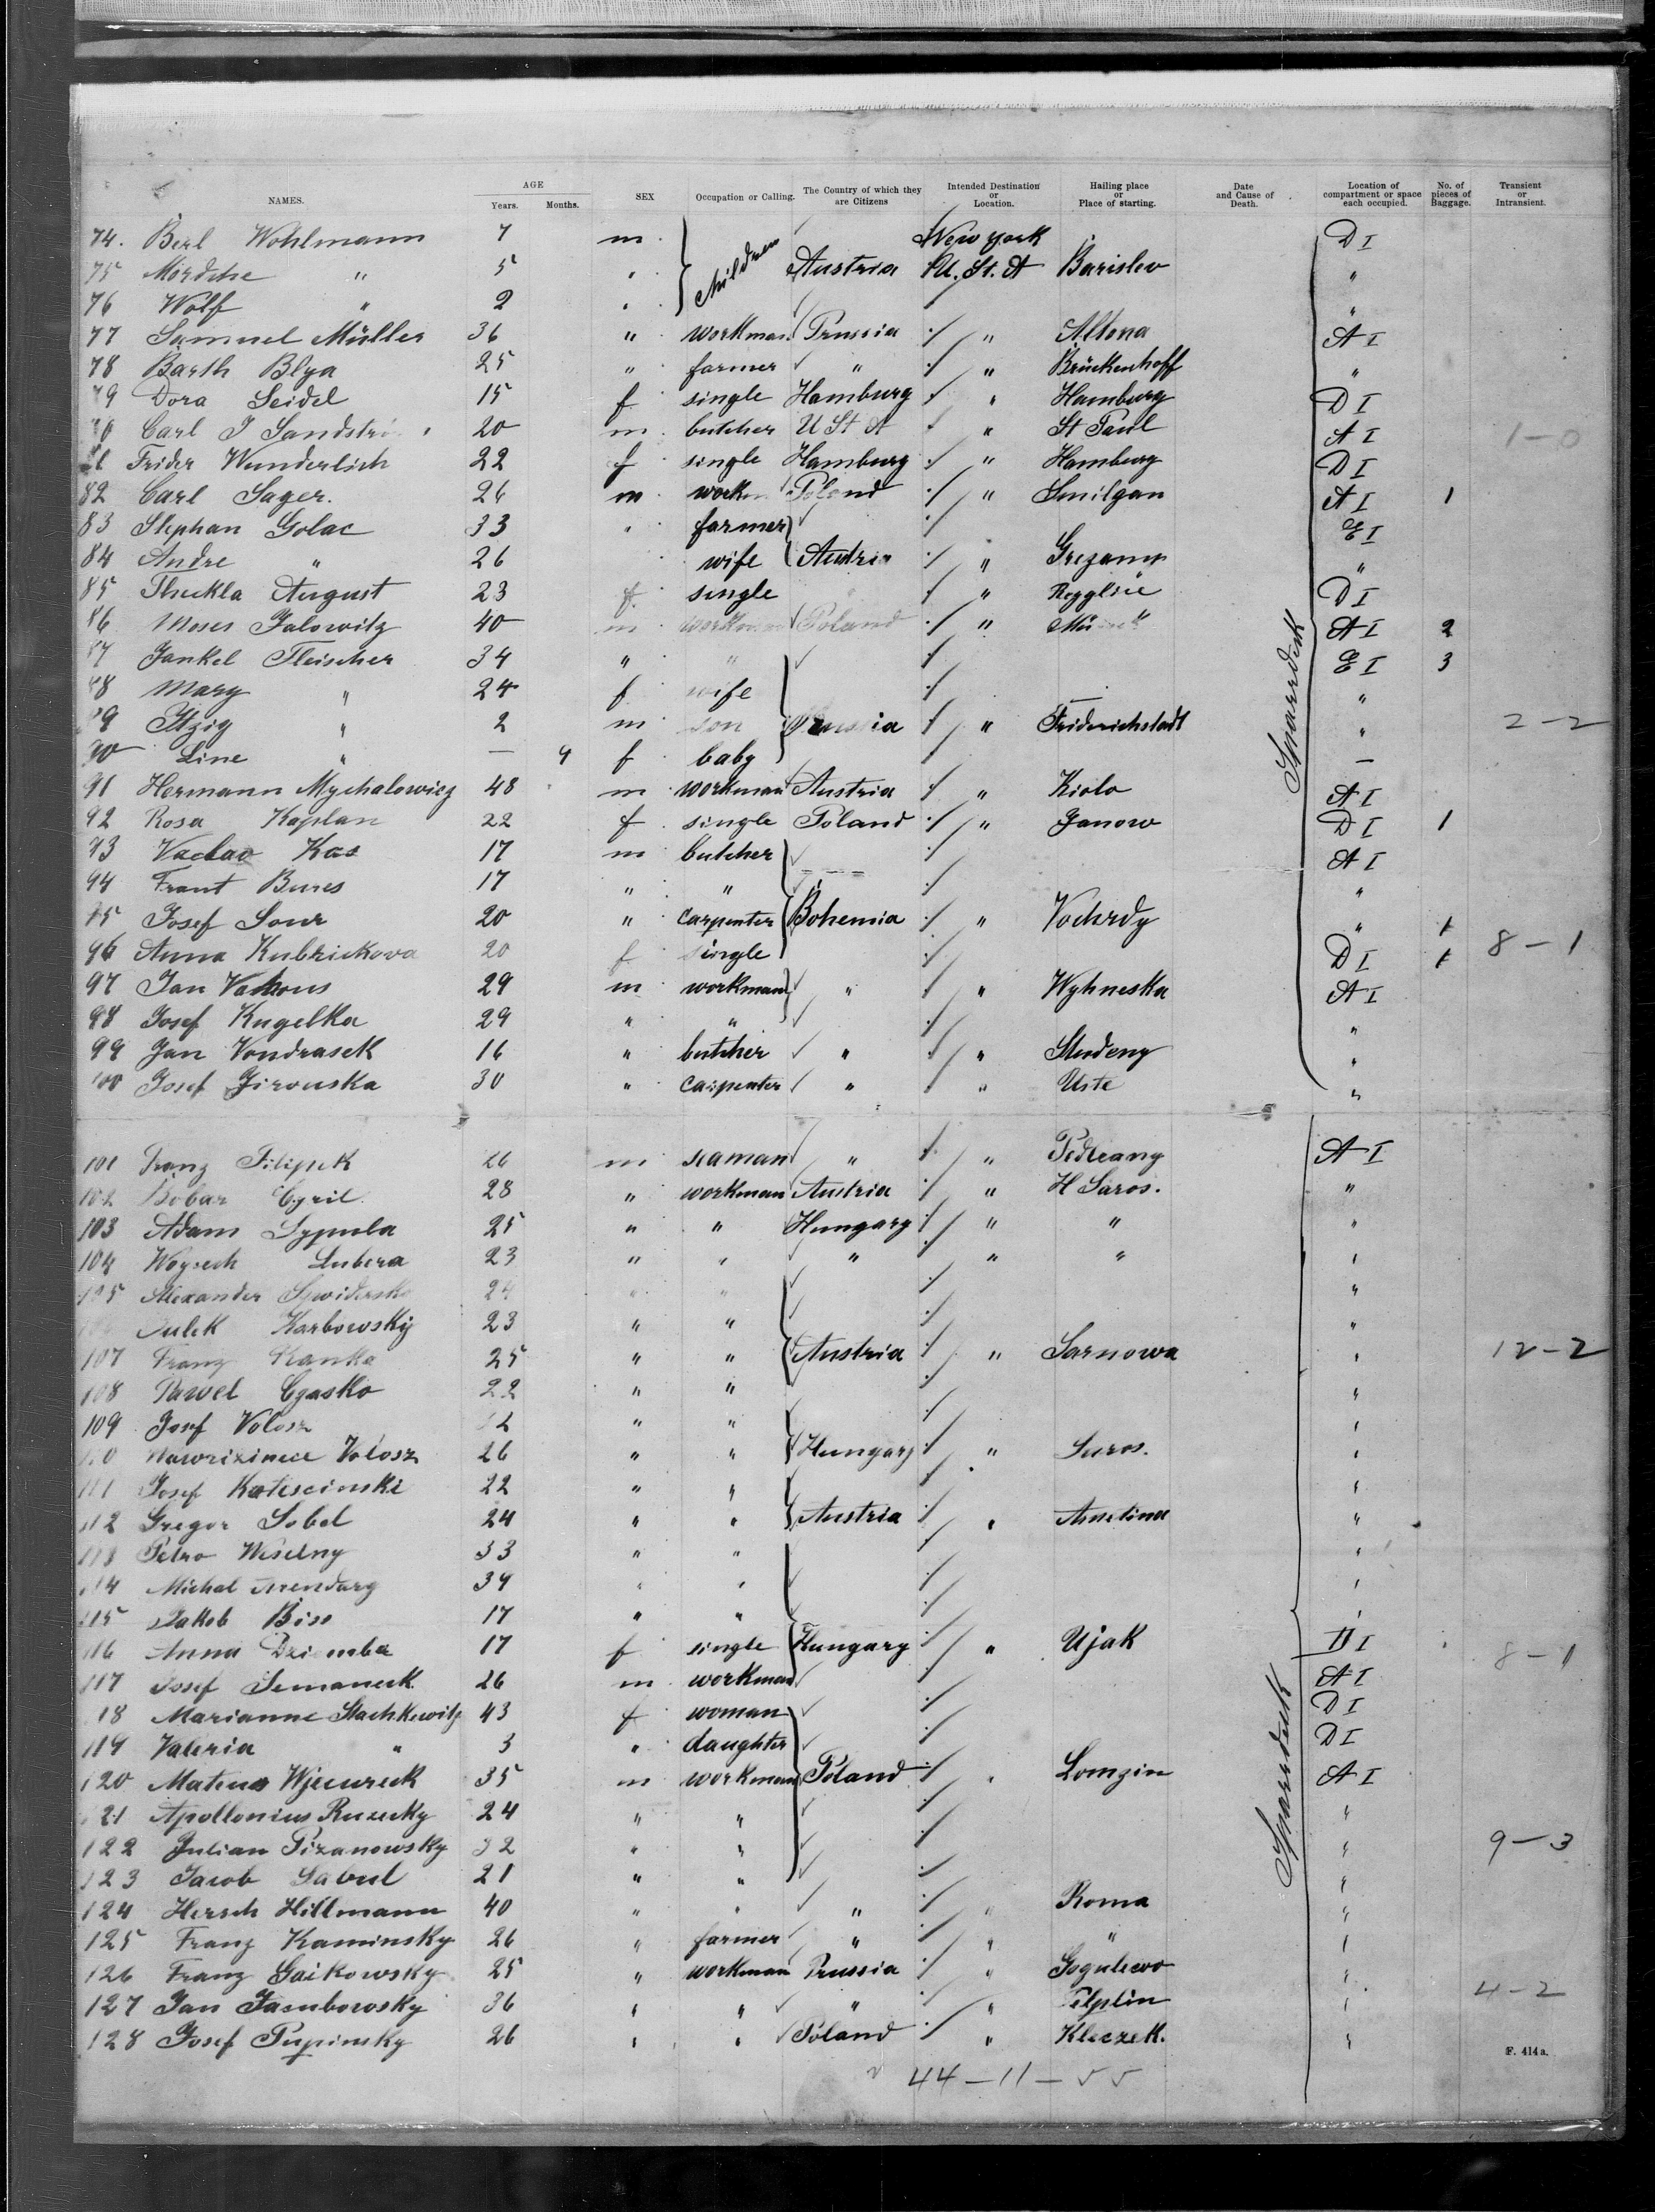 NAMES. AGE Years. Months. SEX Occupation or Calling. The Country of which they are Citizens Intended Destination or Location. Hailing place or Place of starting. Date and Cause of Death. Location of compartment or space each occupied. No. of pieces of Baggage. Transient or Intransient.
74. Berl Wohlmann 7 m. children New York D I
75 Mordche " 5 " Austria U. St. A Barislev "
76 Wolf " 2 " "
77 Samuel Müller 36 " workman Prussia " Altona A I
78 Barth Blya 25 " farmer " " Brückenhoff "
79 Dora Seidel 15 f single Hamburg " Hamburg D I
80 Carl J 20 m butcher U St A " St Paul A I 1-0
81 Frider Wunderlich 22 f single Hamburg " Hamburg D I
82 Carl Sager. 26 m Poland " Smilgan A I 1
83 Stephan Golac 33 " farmer E I
84 Andre " 26 wife Austria " Grezamp "
85 Theckla August 23 f single " " D I
86 Moses Jalowitz 40 m workman Poland " A I 2
87 Jankel Fleischer 34 " " E I 3
88 Mary " 24 f wife "
89 Itzig " 2 m son " Friderichstadt " 2-2
90 Line " — 9 f baby —
91 Hermann Mychalowicz 48 m workman Austria " Kiolo A I
92 Rosa Kaplan 22 f single Poland " Janow D I 1
93 Vaclav Kas 17 m butcher A I
94 Frant Bures 17 " " "
95 Josef Sour 20 " carpenter Bohemia " Vochrdy " 1
96 Anna Kubrickova 20 f single D I 1 8-1
97 Jan 29 m workman " " Wyhneska A I
98 Josef Kugelka 29 " " "
99 Jan Vondrasek 16 " butcher " " Studeny "
100 Josef Jirouska 30 " carpenter " " Uste "
101 Franz Filipek 26 m seaman " " A I
102 Bobar Cyril 28 " workman Austria " H Saros. "
103 Adam Sypula 25 " " Hungary " " "
104 Woysech Lubera 23 " " " " " "
105 Alexander 24 " " "
Karbowsky 23 " " "
107 Franz Kanka 25 " " Austria " Sarnowa " 12-2
108 Pawel Czasko 22 " " "
109 Josef Volosz " " "
Volosz 26 " " Hungary " Saros. "
111 Josef Katiscinski 22 " " "
112 Gregor Sobel 24 " " Austria " "
113 Petro Weselny 33 " " "
114 Michal 34 " " "
115 Jakob Biss 17 " " "
116 Anna Dziemba 17 f single Hungary " Ujak D I 8-1
117 Josef Semaneck 26 m workman A I
118 Marianne Stachkewitz 43 f woman D I
119 Valeria " 3 " daughter D I
120 Mateus 35 m workman Poland " Lomzin A I
121 Apollonius Ruzecky 24 " " "
122 Julian Pizanowsky 32 " " " 9-3
123 Jacob 21 " " "
124 Hersch Hillmann 40 " " " " Roma "
125 Franz Kaminsky 26 " farmer " " " "
126 Franz Gaikowsky 25 " workman Prussia " Gogulewo "
127 Jan Jasubowsky 36 " " " " Pelplin " 4-2
128 Josef Pupinsky 26 " " Poland " Kleczek. "
44-11-55
F. 414a.